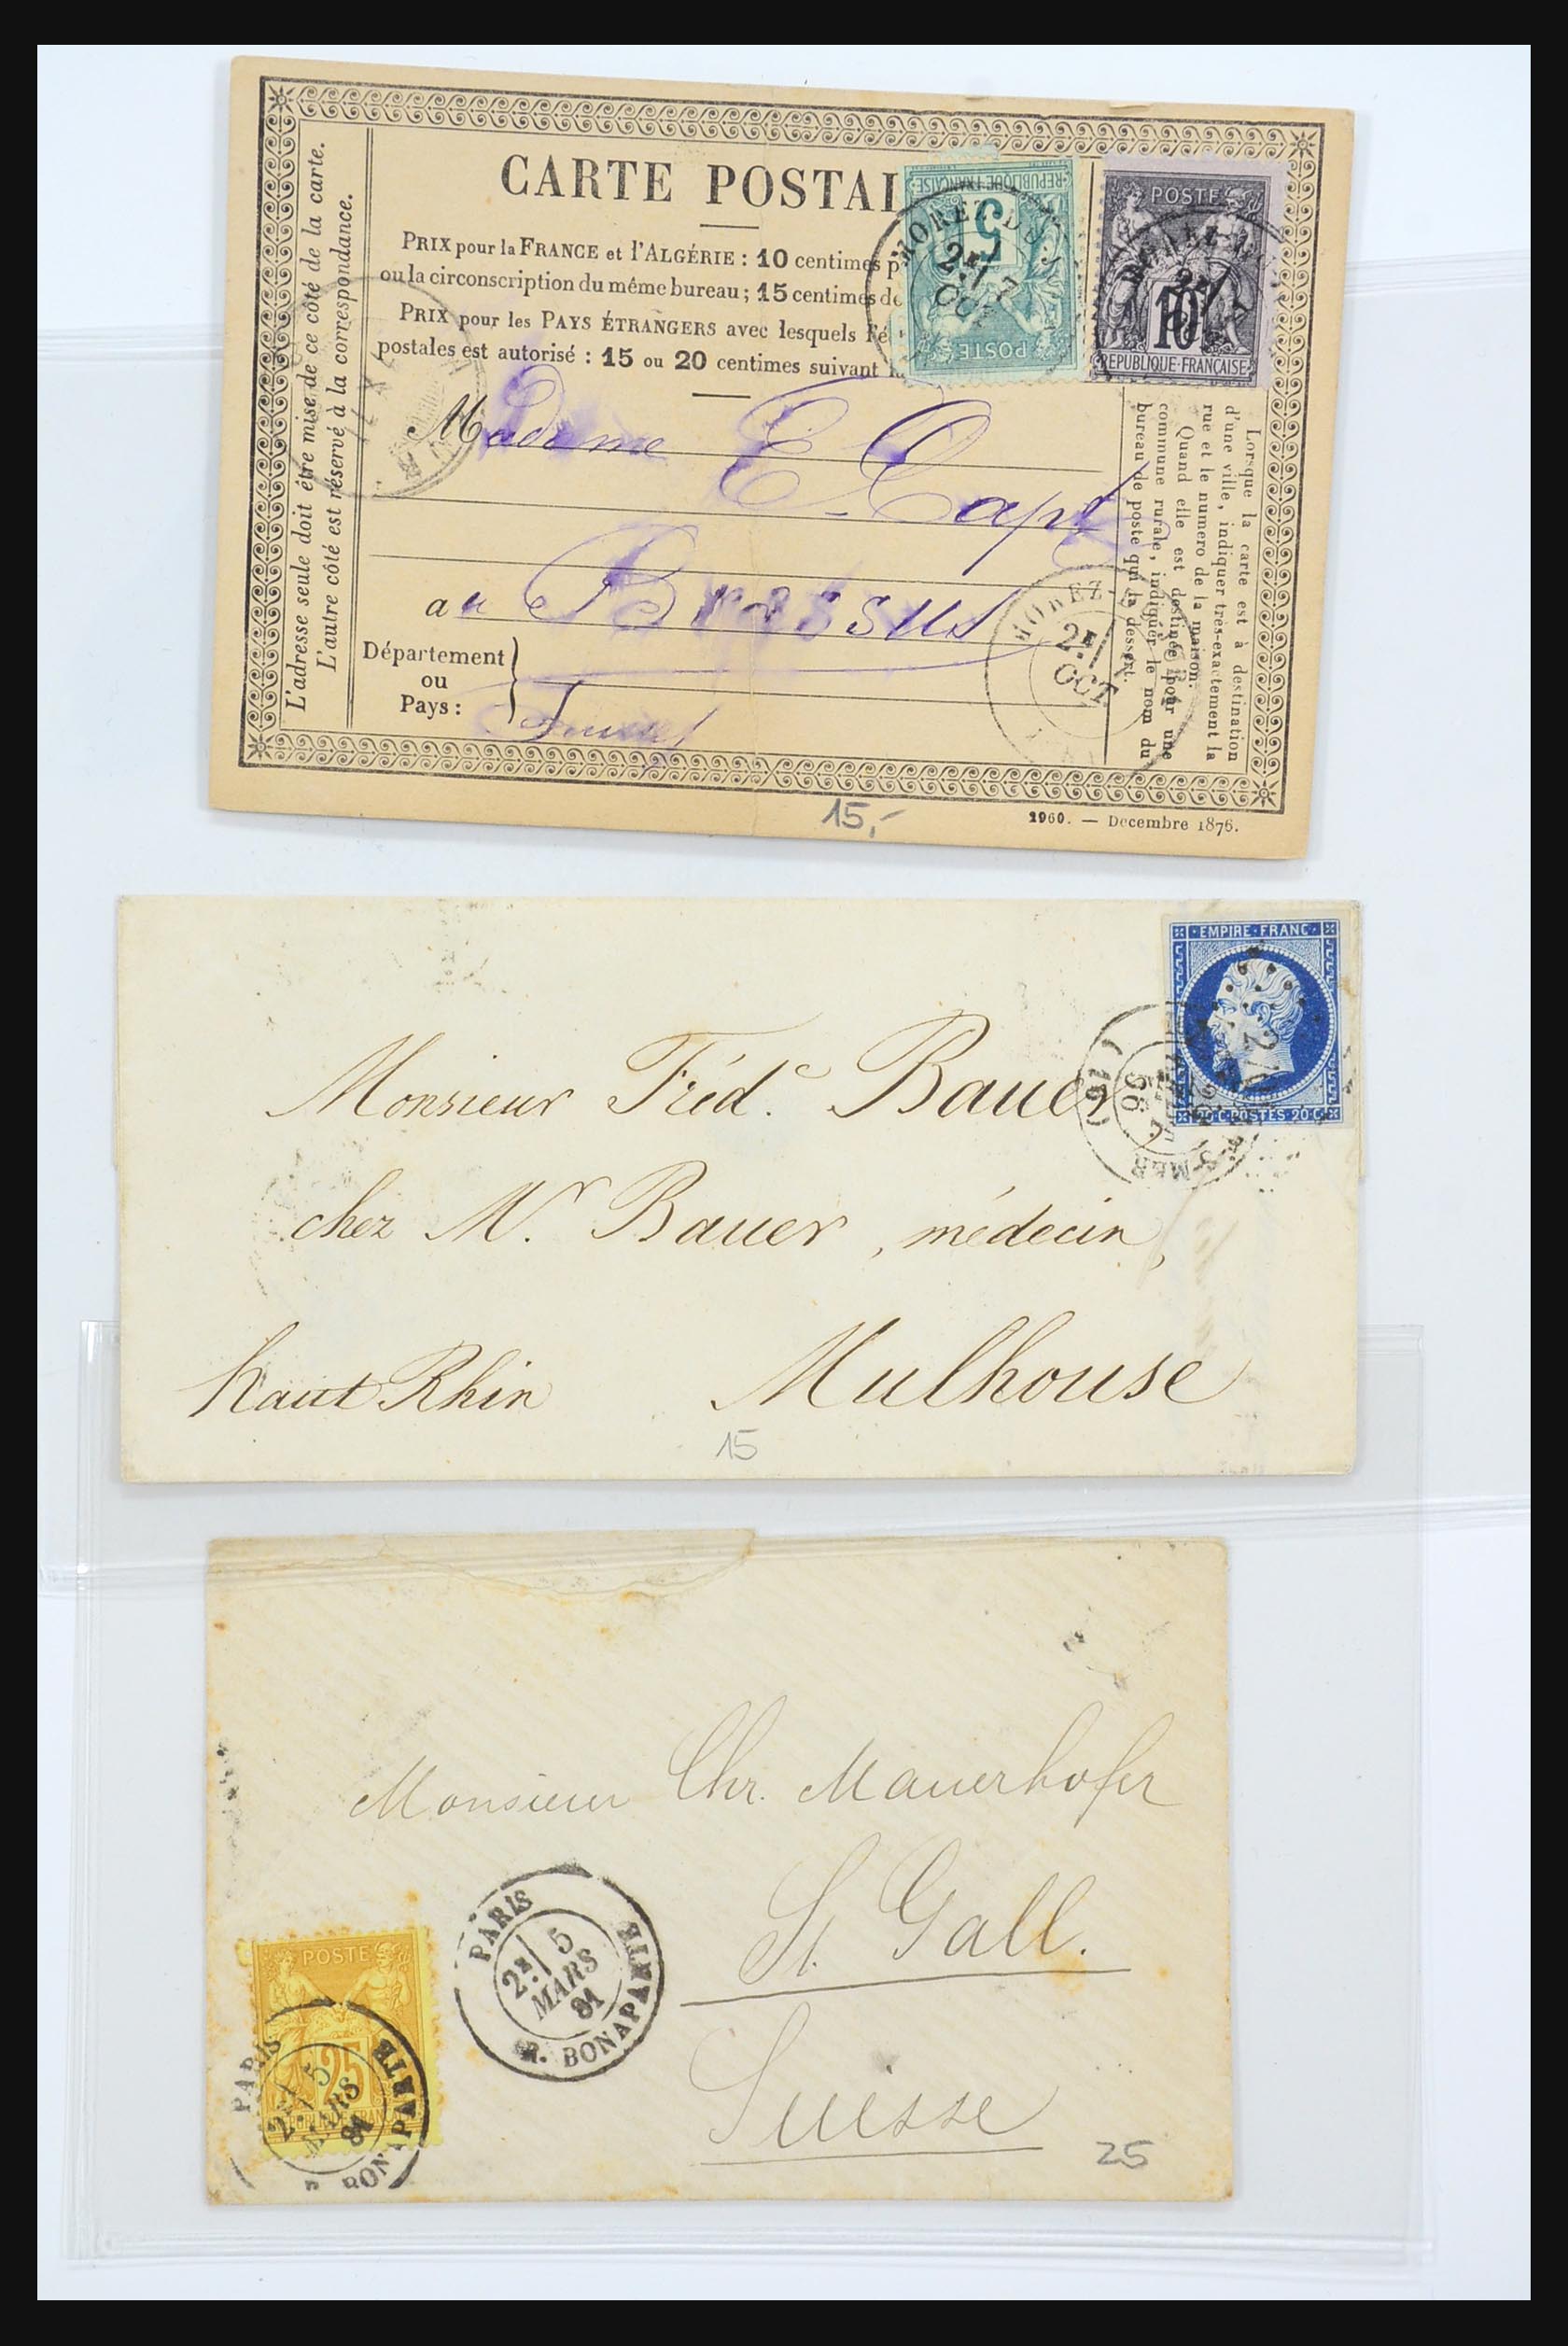 CARTE POSTAL
PRIX pour la FRANCE et l'ALGÉRIE : 10 centimes p
ou la circonscription du même bureau ; 15 centimes de
PRIX pour les PAYS ÉTRANGERS avec lesquels l'é
postales est autorisé : 15 ou 20 centimes suivant
L'adresse seule doit être mise de ce côté de la carte.
L'autre côté est réservé à la correspondance.
REPUBLIQUE FRANÇAISE
5
POSTE
MOREZ-DU-J
2E
OCT
POSTE
10
REPUBLIQUE FRANÇAISE
Madame E. Capt
au Brassus
Département
ou
Pays :
Suisse
MOREZ
2E
OCT
Lorsque la carte est à destination
d'une ville, indiquer très-exactement la
rue et le numero de la maison.
Quand elle est destinée pour une
commune rurale, indiquer le nom du
bureau de poste qui la dessert.
15,-
1960. — Decembre 1876.
EMPIRE FRANC
20 C POSTES 20 C
(61)
56
S-MER
Monsieur Fréd.c Bauer
chez Mr. Bauer, médecin,
haut Rhin Mulhouse
15
Monsieur Chr. Mauerhofer
St. Gall.
Suisse
PARIS
2E 5
MARS
81
R. BONAPARTE
POSTE
25
PARIS
2E 5
MARS
81
BONAPARTE
25